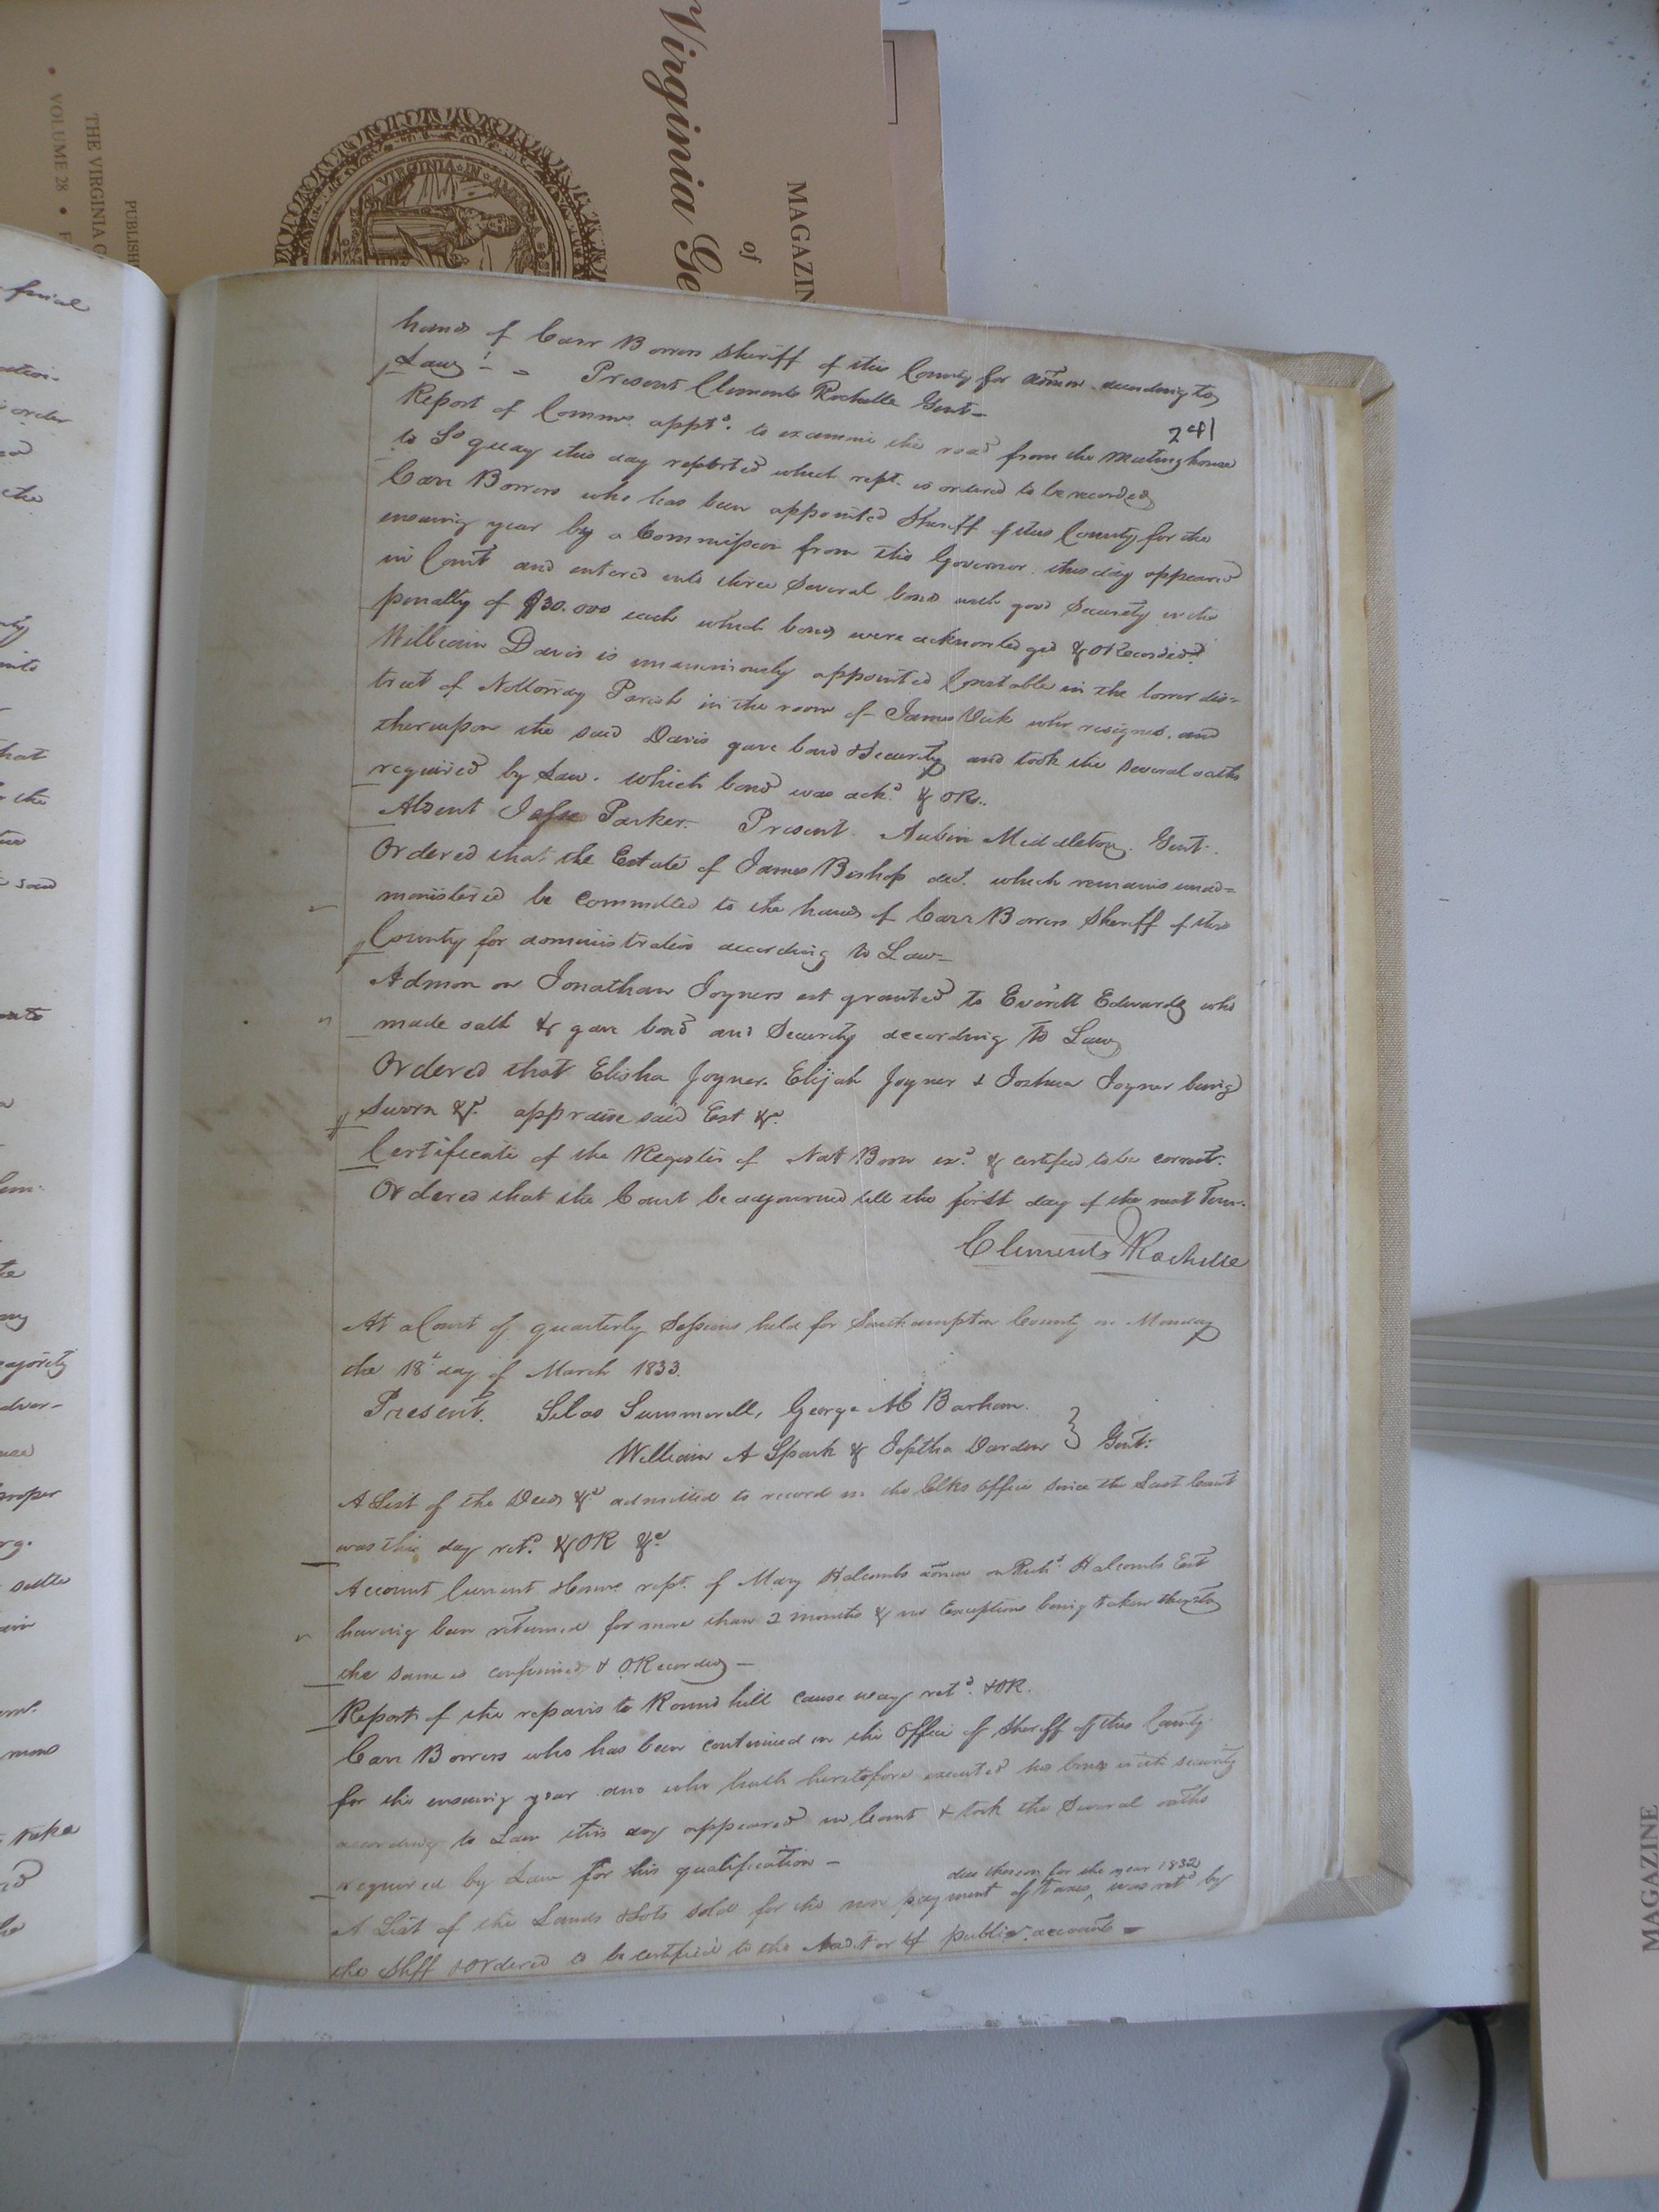 Virginia Ge
MAGAZIN
of
VIRGINIA IN
PUBLISH
THE VIRGINIA G
VOLUME 28
241
hands of Carr Bowers Sheriff of this County for admon according to
Law - - Present Clements Rochelle Gent-
Report of Comms. apptd. to examine the road from the meeting house
to So quay this day reported which rept. is ordered to be recorded
Carr Bowers who has been appointed Sheriff of this County for the
ensuing year by a Commission from the Governor this day appeared
in Court and entered into three several bonds with good Security in the
penalty of $30.000 each which bonds were acknowledged & ORecorded
William Davis is unanimously appointed Constable in the lower dis=
trict of Nottoway Parish in the room of James Vick who resigned. and
thereupon the said Davis gave bond & Security and took the several oaths
required by Law. which bond was ackd. & OR.
Absent Jesse Parker. Present Aubin Middleton Gent.
Ordered that the Estate of James Bishop decd. which remains unad=
ministered be committed to the hands of Carr Bowers Sheriff of this
County for administration according to Law-
Admon on Jonathan Joyners est granted to Everitt Edwards who
made oath & gave bond and Security according to Law
Ordered that Elisha Joyner. Elijah Joyner & Joshua Joyner being
Sworn &c. appraise said Est &c.
Certificate of the Register of Nat exd. & certified to be correct.
Ordered that the Court be adjourned till the first day of the next Term.
Clements Rochelle
At a Court of quarterly Sessions held for Southampton County on Monday
the 18th day of March 1833.
Present. Silas Summerell, George M Barham.
William A Spark & Jeptha Darden } Gent:
A List of the Deeds &c admitted to record in the Clks office since the Last Court
was this day retd. & OR &c
Account Current & Comrs. rept. of Mary Halcombs admx on Richd. Halcombs Est
having been returned for more than 2 months & no Exceptions being taken thereto
the same is confirmed & ORecorded -
Report of the repairs to Round hill cause way retd. & OR.
Carr Bowers who has been continued in the office of Sheriff of this County
for the ensuing year and who hath heretofore executed his bonds with security
according to Law this day appeared in Court & took the Several oaths
required by Law for his qualification -
due thereon for the year 1832
A List of the Lands & Lots sold for the non payment of taxes ^ was retd by
the Shff & ordered to be certified to the Auditor of public accounts -
MAGAZINE